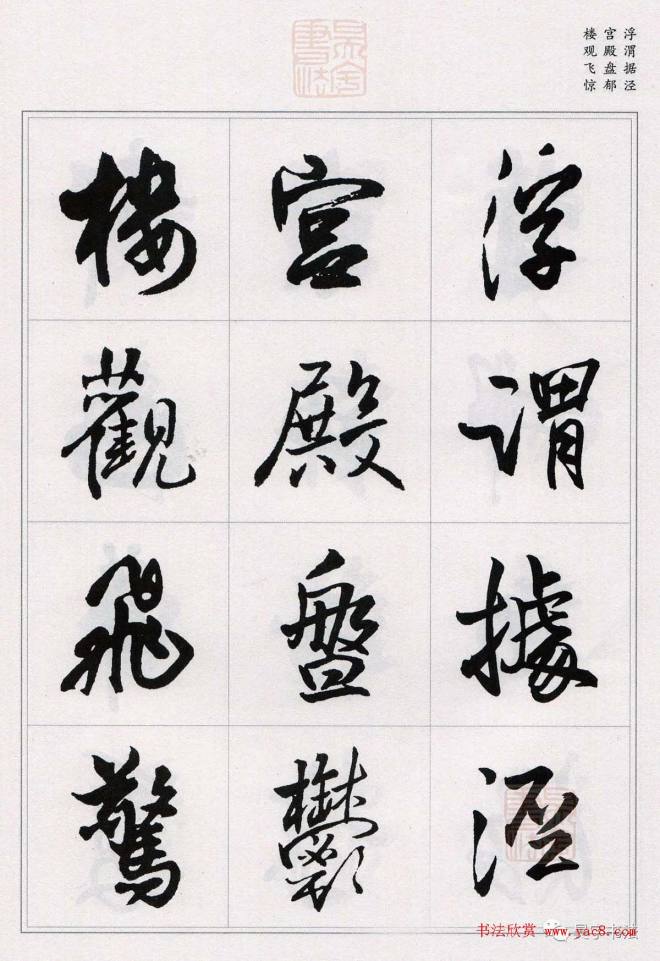 浮渭据泾
宫殿盘郁
楼观飞惊
浮謂據涇
宮殿盤鬱
樓觀飛驚
书法欣赏 www.yac8.com